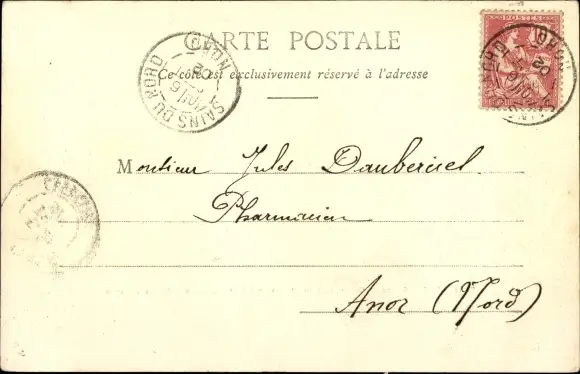 CARTE POSTALE
Ce côté est exclusivement réservé à l'adresse
POSTES
SAINS DU NORD NORD
Monsieur Jules
Pharmacien
Anor (Nord)